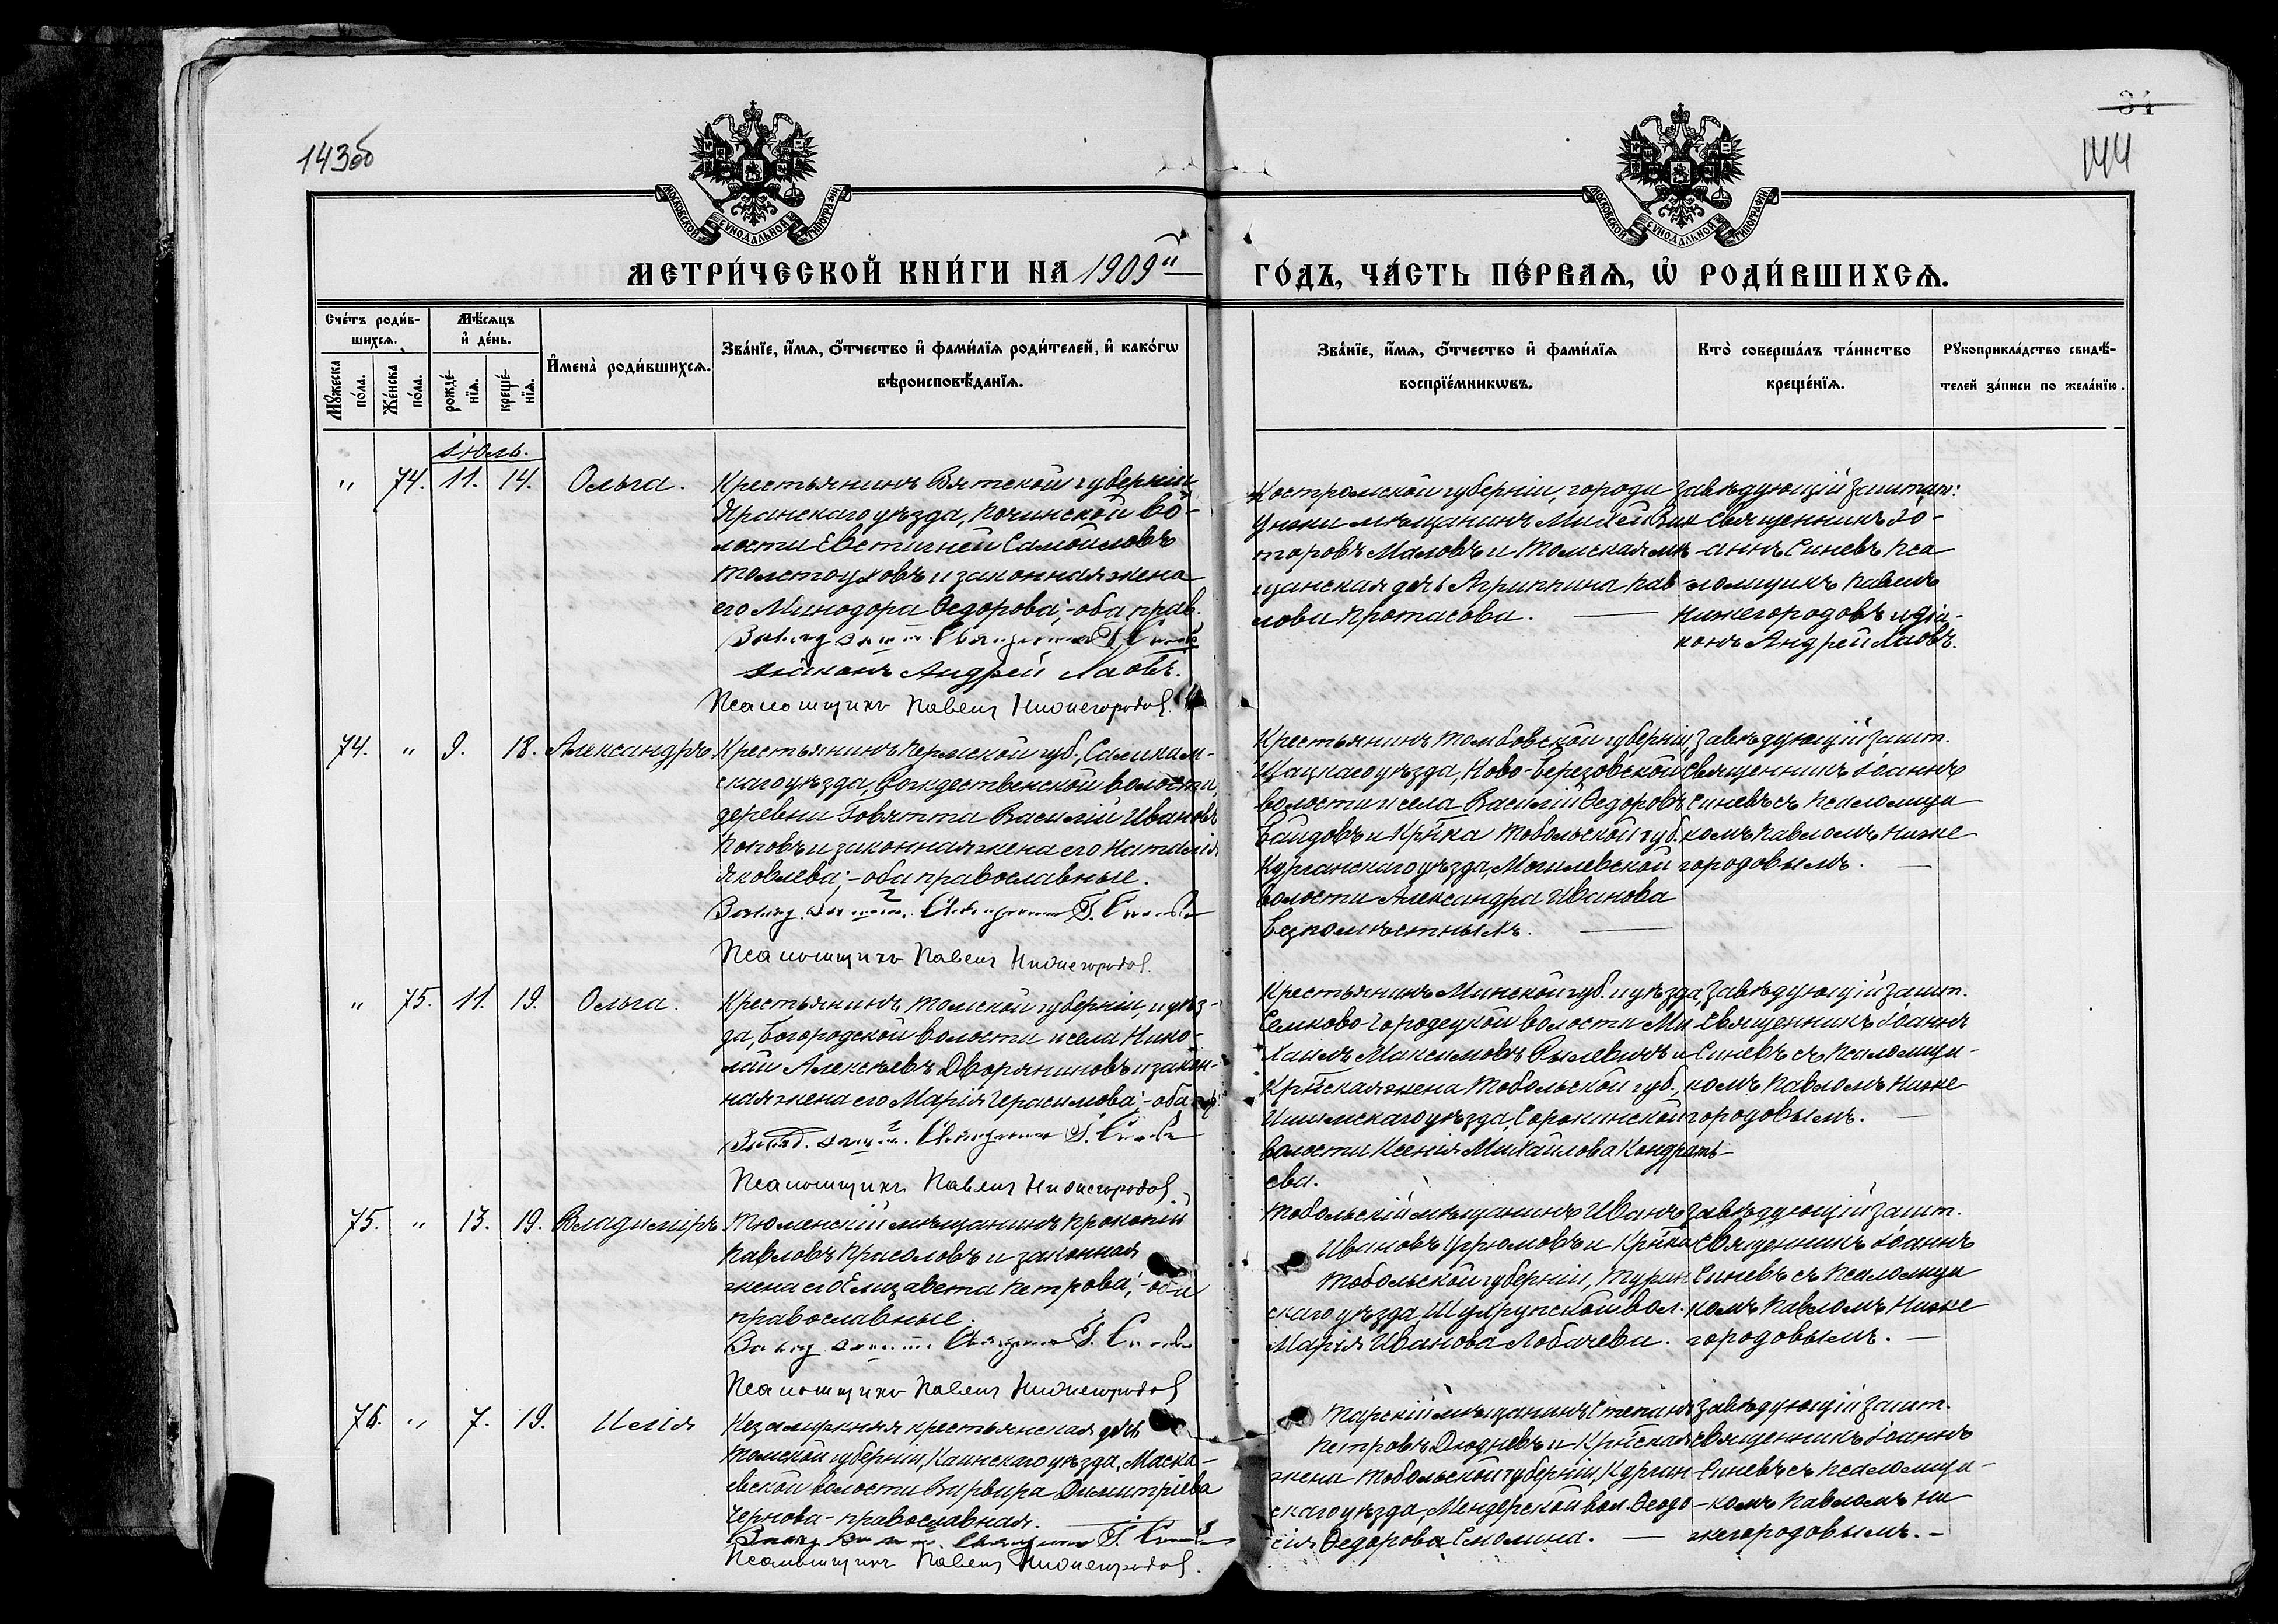 143об
34
144
МОСКОВСКОЙ СѴНОДАЛЬНОЙ ТИПОГРАФІИ
МОСКОВСКОЙ СѴНОДАЛЬНОЙ ТИПОГРАФІИ
МЕТРИ́ЧЕСКОЙ КНИ́ГИ НА 1909й
ГО́ДЪ, ЧА́СТЬ ПЕ́РВАѦ, Ѡ҆ РОДИ́ВШИХСѦ.
Сче́тъ роди́в-
шихсѧ.
Мѣ́сѧцъ
и҆ де́нь.
Мꙋ́жеска
по́ла.
Же́нска
по́ла.
рожде́-
нїѧ.
креще́-
нїѧ.
И҆мена̀ роди́вшихсѧ.
Зва́нїе, и҆́мѧ, ѻ҆́тчество и҆ фами́лїѧ роди́телей, и҆ како́гѡ
вѣроисповѣ́данїѧ.
Зва́нїе, и҆́мѧ, ѻ҆́тчество и҆ фами́лїѧ
воспрїе́мникѡвъ.
Кто̀ соверша́лъ та́инство
креще́нїѧ.
Рꙋкоприкла́дство свидѣ́-
телей за́писи по жела́нїю.
Іюль.
" 74. 11. 14. Ольга.
Крестьянинъ Вятской губерніи
Яранскаго уѣзда, Кочинской во-
лости Евстигней Самойловъ
Толстоуховъ и законная жена
его Минодора Ѳедорова; - оба прав.
Завѣд. зашт. Священникъ І. Синевъ
Діаконъ Андрей Лаовъ.
Псаломщикъ Павелъ Нижегородов.
Костромской губерніи, города
мѣщанинъ Михей Вик
торовъ Маловъ и Томская мѣ
щанская дчь Агриппина Пав
лова Протасова.
Завѣдующій зашт.
Священникъ Іо-
аннъ Синевъ Пса
ломщикъ Павелъ
Нижегородовъ и діа-
конъ Андрей Лаовъ.
74. " 9. 18. Александръ.
Крестьянинъ Пермской губ., Саликам-
скаго уѣзда, Рождественской волости,
деревни Василій Ивановъ
Поповъ и законная жена его Наталія
Яковлева; - оба православные.
Завѣд. зашт. Священникъ І. Синевъ
Псаломщикъ Павелъ Нижегородов.
Крестьянинъ Тамбовской губерніи,
Шацкаго уѣзда, Ново-Березовской
волости и села Василій Ѳедоровъ
Байдовъ и Кр҃нка Тобольской губ.
Курганскаго уѣзда, Могилевской
волости Александра Иванова
Безпомѣстныхъ.
Завѣдующій зашт.
Священникъ Іоаннъ
Синевъ съ Псаломщи
комъ Павломъ Ниже
городовымъ.
" 75. 11. 19. Ольга.
Крестьянинъ Томской губерніи, и уѣз-
да, Богородской волости и села Нико-
лай Алексѣевъ Дворяниновъ и закон-
ная жена его Марія Герасимова; - оба пр.
Завѣд. зашт. Священникъ І. Синевъ
Псаломщикъ Павелъ Нижегородов.
Крестьянинъ Минской губ. и уѣзда,
Семково-Городецкой волости Ми
хаилъ Максимовъ Рылевичъ и
Кр҃нская жена Тобольской губ.,
Ишимскаго уѣзда, Сорокинской
волости Ксенія Михайлова Кондрать-
ева.
Завѣдующій зашт.
Священникъ Іоаннъ
Синевъ съ Псаломщи-
комъ Павломъ Ниже
городовымъ.
75. " 13. 19. Владиміръ.
Тюменскій мѣщанинъ Прокопій
Павловъ Прасоловъ и законная
жена его Елизавета Петрова; - оба
православные.
Завѣд. зашт. Священникъ І. Синевъ
Псаломщикъ Павелъ Нижегородов
Тобольскій мѣщанинъ Иванъ
Ивановъ Угрюмовъ и Кр҃нка
Тобольской губерніи, Турин
скаго уѣзда, Шухрупской вол.
Марія Иванова Лобачева.
Завѣдующій зашт.
Священникъ Іоаннъ
Синевъ съ Псаломщи
комъ Павломъ Ниже
городовымъ. -
76. " 7. 19. Илія
Незамужняя крестьянская дѣв
Томской губерніи, Каинскаго уѣзда,
волости Варвара Димитріева
Чернова - православная.
Завѣд. зашт. Священникъ І. Синевъ
Псаломщикъ Павелъ Нижегородов.
Тарскій мѣщанинъ Степанъ
Петровъ Дюдневъ и Кр҃нская
жена Тобольской губерніи, Курган
скаго уѣзда, Мендерской вол. Ѳеодо
сія Ѳедорова Смолина.
Завѣдующій зашт.
Священникъ Іоаннъ
Синевъ съ Псаломщи-
комъ Павломъ Ни
жегородовымъ. -